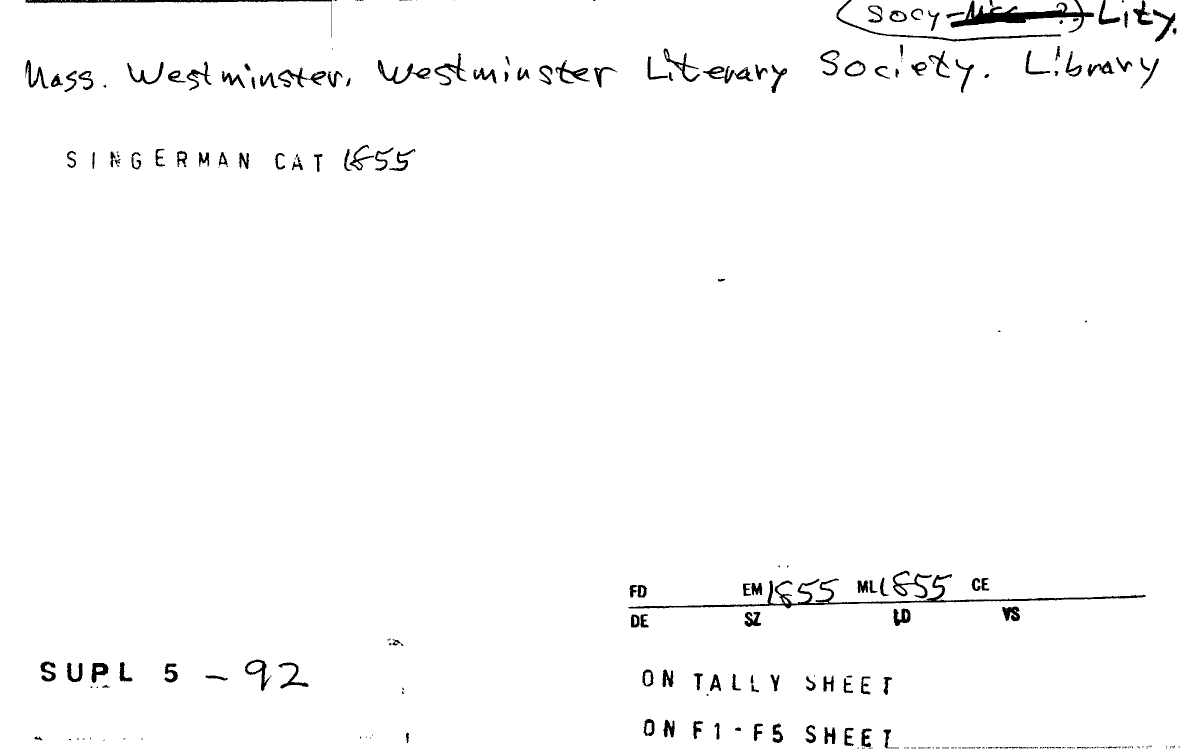 (Socy- Lity.
Mass. Westminster. Westminster Literary Society. Library
SINGERMAN CAT 1855
FD EM 1855 ML 1855 CE
DE SZ LD VS
SUPL 5 - 92
ON TALLY SHEET
ON F1-F5 SHEET